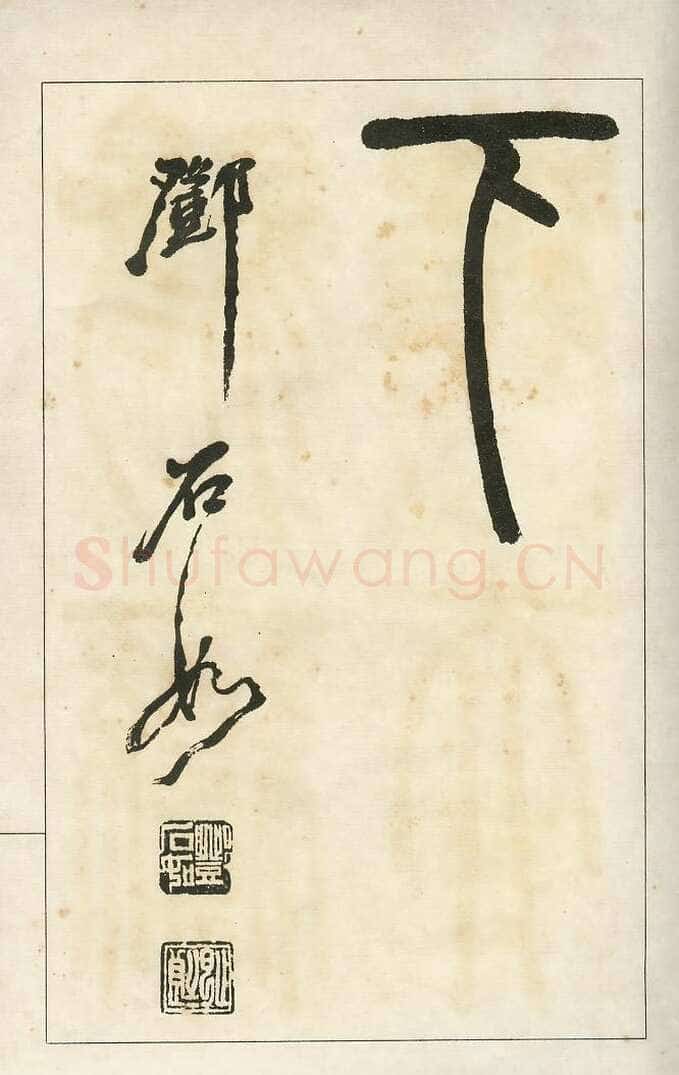 下
鄧石如
Shufawang.CN
鄧石如